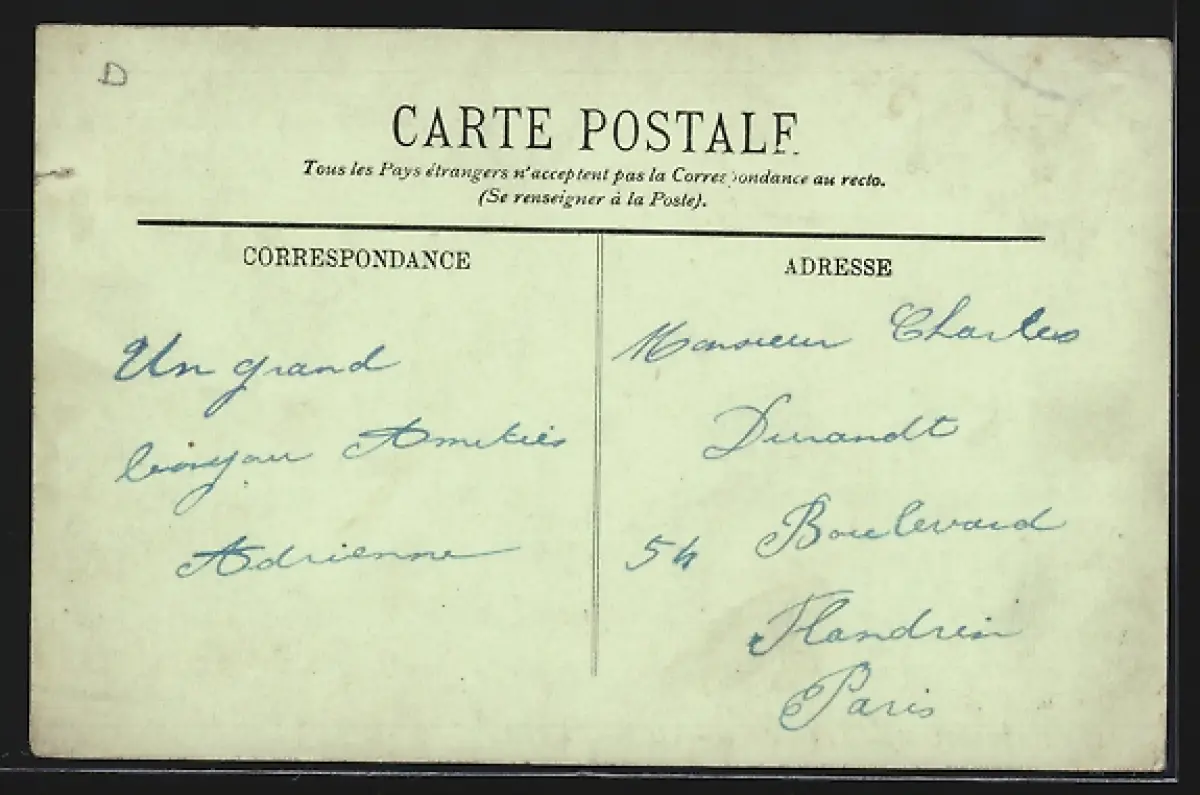 D
CARTE POSTALE
Tous les Pays étrangers n'acceptent pas la Correspondance au recto.
(Se renseigner à la Poste).
CORRESPONDANCE
Un grand
bonjour Amitiés
Adrienne
ADRESSE
Monsieur Charles
Durandt
54 Boulevard
Flandrin
Paris